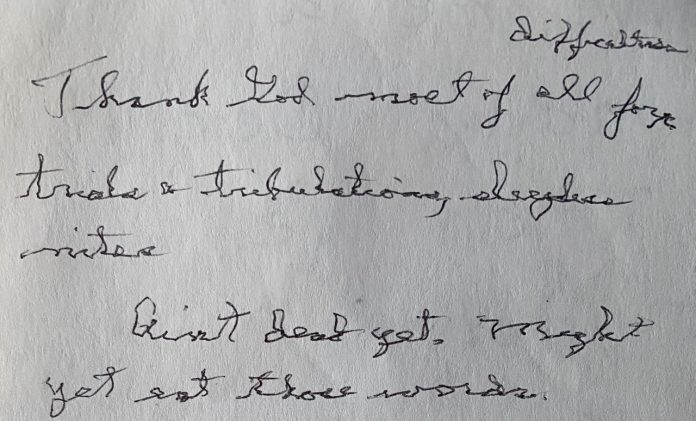 difficulties
Thank God most of all for
trials & tribulations, sleepless
nites
Ain't dead yet. Might
yet eat those words.